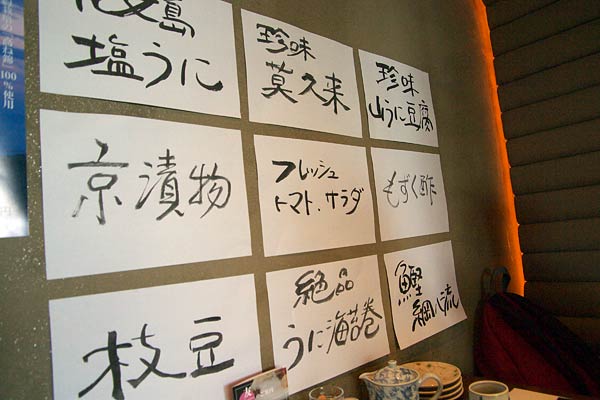 塩うに
珍味
莫久来
珍味
山うに豆腐
京漬物
フレッシュ
トマト、サラダ
もずく酢
枝豆
絶品
うに海苔巻
鰹
綱八流
100%使用